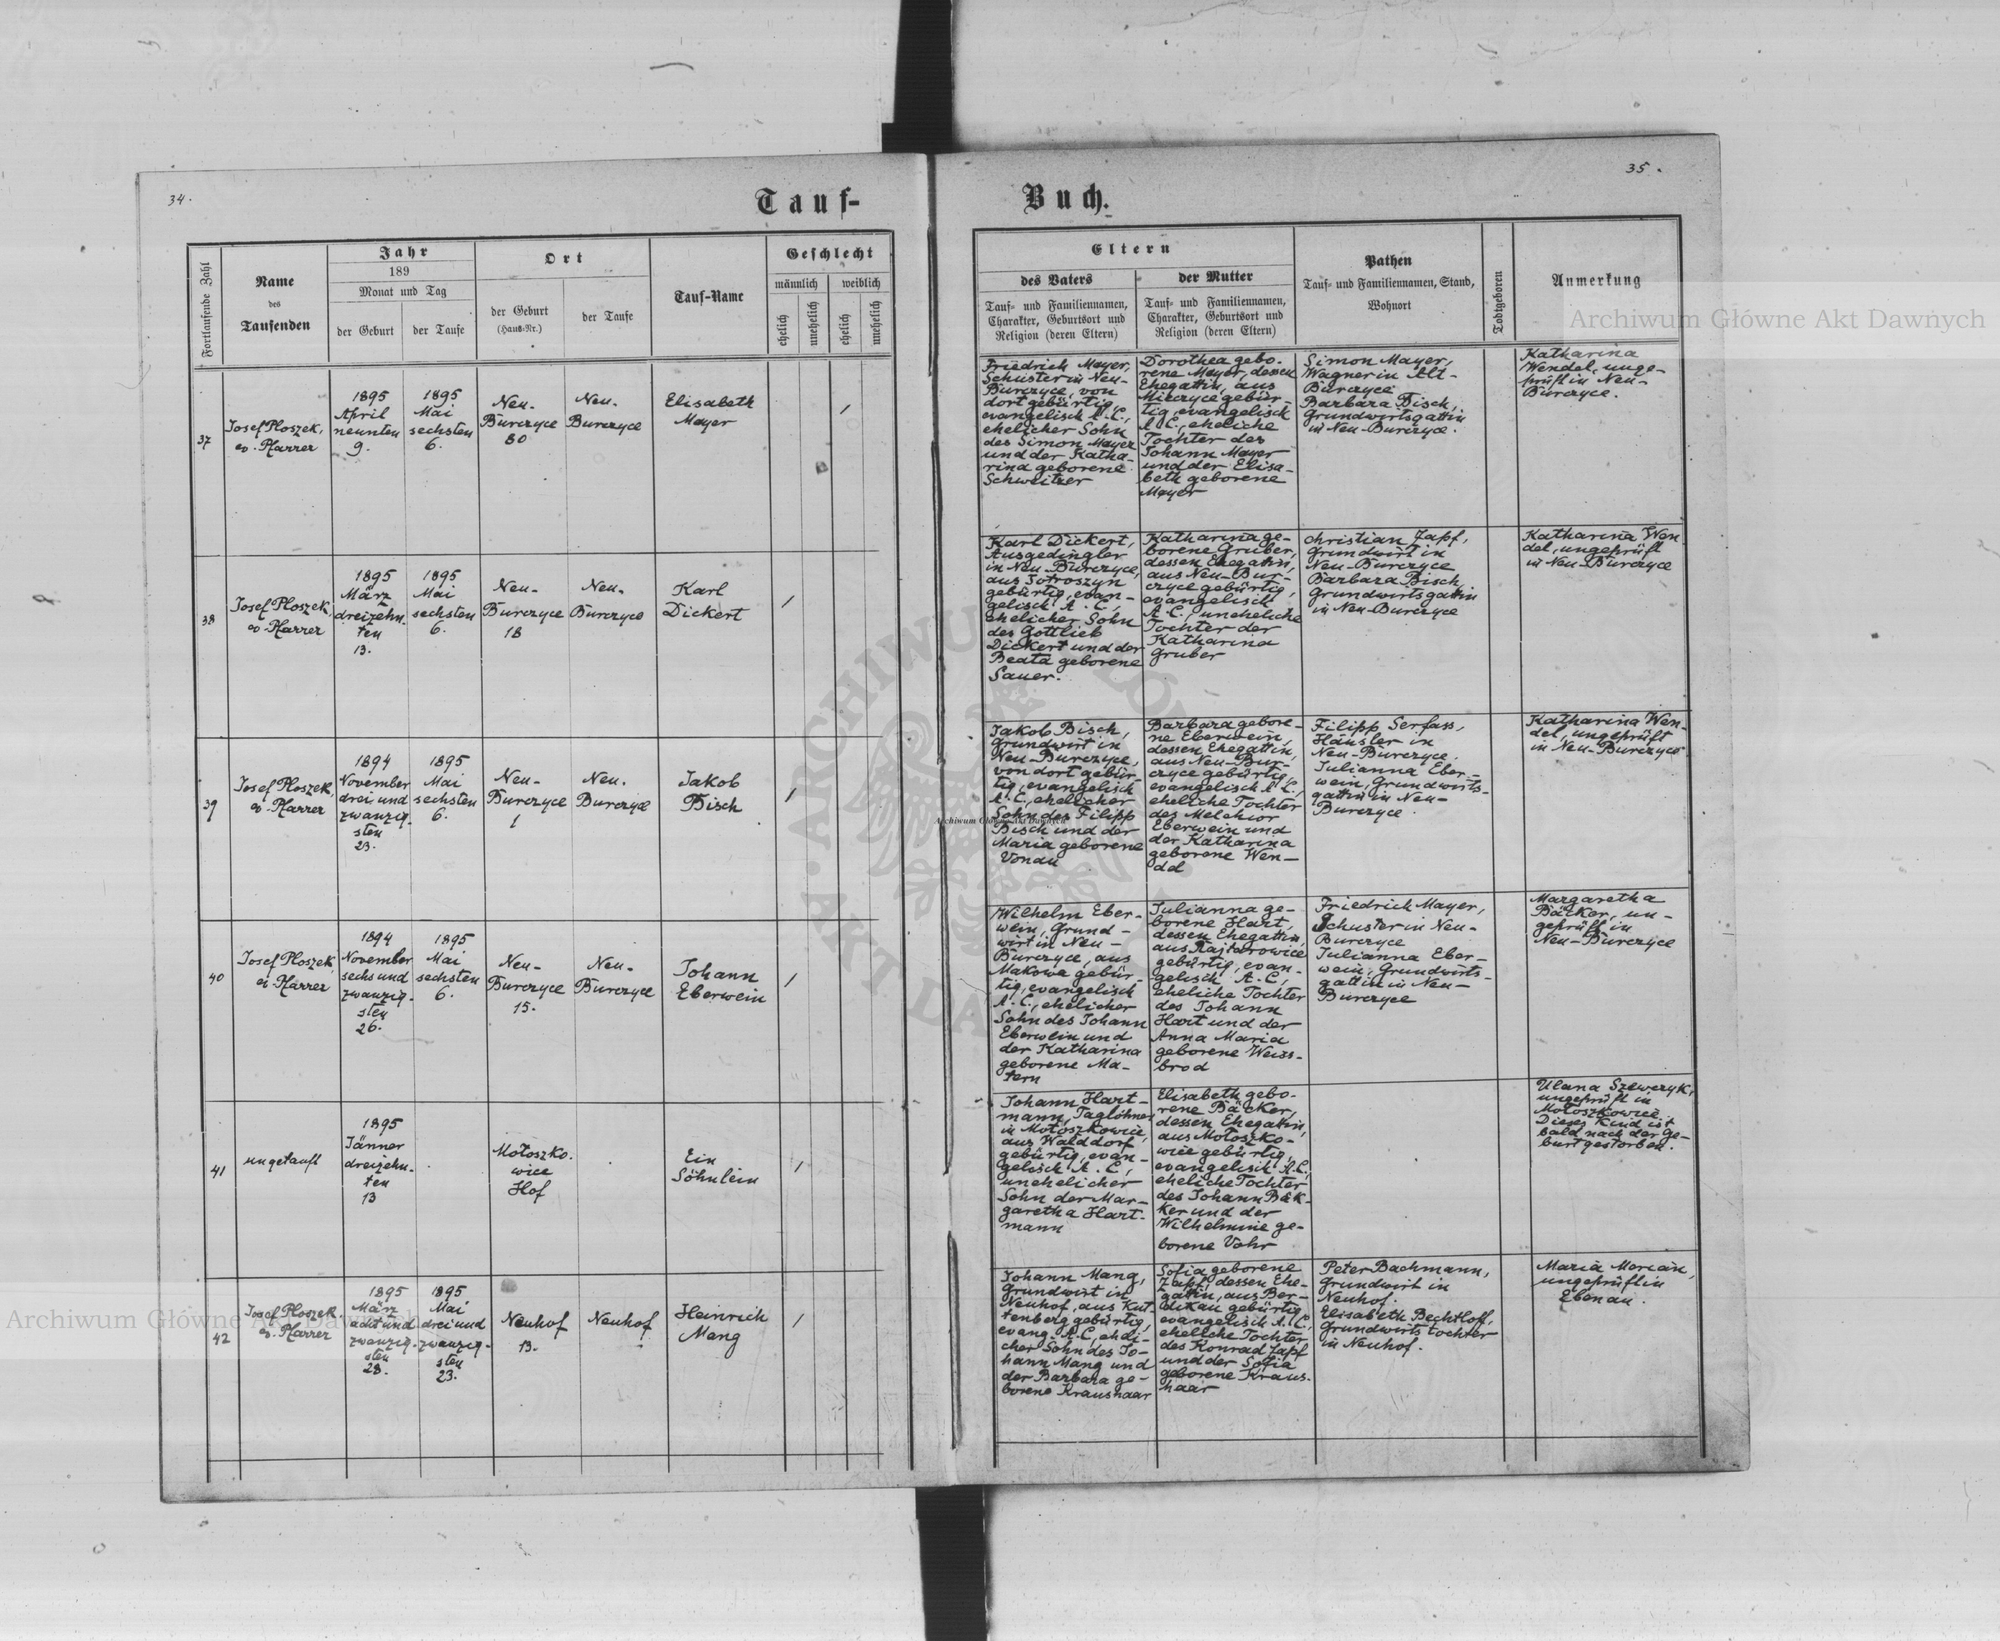 34.
Tauf-
Fortlaufende Zahl
Name
des
Taufenden
Jahr
189
Monat und Tag
der Geburt
der Taufe
Ort
der Geburt
(Haus-Nr.)
der Taufe
Tauf-Name
Geschlecht
männlich
weiblich
ehelich
unehelich
ehelich
unehelich
37
Josef Ploszek,
ev. Pfarrer
1895
April
neunten
9.
1895
Mai
sechsten
6.
Neu-
Burczyce
30
Neu-
Burczyce
Elisabeth
Mayer
/
38
Josef Ploszek,
ev. Pfarrer
1895
März
dreizehn-
ten
13.
1895
Mai
sechsten
6.
Neu-
Burczyce
18
Neu-
Burczyce
Karl
Dickert
/
39
Josef Ploszek,
ev. Pfarrer
1894
November
drei und
zwanzig-
sten
23.
1895
Mai
sechsten
6.
Neu-
Burczyce
1
Neu-
Burczyce
Jakob
Bisch
/
40
Josef Ploszek,
ev. Pfarrer
1894
November
sechs und
zwanzig-
sten
26.
1895
Mai
sechsten
6.
Neu-
Burczyce
15.
Neu-
Burczyce
Johann
Eberwein
/
41
ungetauft
1895
Jänner
dreizehn-
ten
13
Mołoszko-
wice
Hof
Ein
Söhnlein
/
42
Josef Ploszek.
ev. Pfarrer
1895
März
acht und
zwanzig-
sten
28.
1895
Mai
drei und
zwanzig-
sten
23.
Neuhof
13.
Neuhof
Heinrich
Mang
/
35.
Buch.
Eltern
des Vaters
Tauf- und Familiennamen,
Charakter, Geburtsort und
Religion (deren Eltern)
der Mutter
Tauf- und Familiennamen,
Charakter, Geburtsort und
Religion (deren Eltern)
Pathen
Tauf- und Familiennamen, Stand,
Wohnort
Todtgeboren
Anmerkung
Friedrich Mayer,
Schuster in Neu-
Burczyce, von
dort gebürtig,
evangelisch A.C.,
ehelicher Sohn
des Simon Mayer
und der Katha-
rina geborene
Schweitzer
Dorothea gebo-
rene Mayer, dessen
Ehegattin, aus
Miczyce gebür-
tig, evangelisch
A.C., eheliche
Tochter des
Johann Mayer
und der Elisa-
beth geborene
Mayer
Simon Mayer,
Wagner in Alt-
Burczyce
Barbara Bisch,
Grundwirtsgattin
in Neu-Burczyce.
Katharina
Wendel, unge-
prüft in Neu-
Burczyce.
Karl Dickert,
Ausgedingler
in Neu-Burczyce,
aus
gebürtig, evan-
gelisch A.C.,
ehelicher Sohn
des Gottlieb
Dickert und der
Beata geborene
Sauer.
Katharina ge-
borene Gruber,
dessen Ehegattin,
aus Neu-Bur-
czyce gebürtig,
evangelisch
A.C., uneheliche
Tochter der
Katharina
Gruber
Christian Zapf,
Grundwirt in
Neu-Burczyce
Barbara Bisch,
Grundwirtsgattin
in Neu-Burczyce
Katharina Wen
del, ungeprüft
in Neu-Burczyce
Jakob Bisch,
Grundwirt in
Neu-Burczyce,
von dort gebür-
tig, evangelisch
A.C., ehelicher
Sohn des Filipp
Bisch und der
Maria geborene
Vonau
Barbara gebore-
ne Eberwein,
dessen Ehegattin,
aus Neu-Bur-
czyce gebürtig,
evangelisch A.C.,
eheliche Tochter
des Melchior
Eberwein und
der Katharina
geborene Wen-
del
Filipp Serfass,
Häusler in
Neu-Burczyce.
Julianna Eber-
wein, Grundwirts-
gattin in Neu-
Burczyce.
Katharina Wen-
del, ungeprüft
in Neu-Burczyce
Wilhelm Eber-
wein, Grund-
wirt in Neu-
Burczyce, aus
Makowa gebür-
tig, evangelisch
A.C., ehelicher
Sohn des Johann
Eberwein und
der Katharina
geborene Ma-
tern
Julianna ge-
borene Hart,
dessen Ehegattin,
aus Rajtarowice
gebürtig, evan-
gelisch A.C.,
eheliche Tochter
des Johann
Hart und der
Anna Maria
geborene Weiss-
brod
Friedrich Mayer,
Schuster in Neu-
Burczyce
Julianna Eber-
wein, Grundwirts-
gattin in Neu-
Burczyce
Margaretha
Bäcker, un-
geprüft in
Neu-Burczyce
Johann Hart-
mann, Taglöhner
in Mołoszkowice,
aus Walddorf
gebürtig, evan-
gelisch A.C.,
unehelicher
Sohn der Mar-
garetha Hart-
mann
Elisabeth gebo-
rene Bäcker,
dessen Ehegattin,
aus Mołoszko-
wice gebürtig,
evangelisch A.C.,
eheliche Tochter
des Johann Bäk-
ker und der
Wilhelmine ge-
borene Vohr
Ulana Szewczyk,
ungeprüft in
Mołoszkowice.
Dieses Kind ist
bald nach der Ge-
burt gestorben.
Johann Mang,
Grundwirt in
Neuhof, aus Kut-
tenberg gebürtig,
evang. A.C., eheli-
cher Sohn des Jo-
hann Mang und
der Barbara ge-
borene Kraushaar
Sofia geborene
Zapf, dessen Ehe-
gattin, aus Ber-
dikau gebürtig,
evangelisch A.C.,
eheliche Tochter
des Konrad Zapf
und der Sofia
geborene Kraus-
haar
Peter Bachmann,
Grundwirt in
Neuhof.
Elisabeth Bechtloff,
Grundwirtstochter
in Neuhof.
Maria Morian,
ungeprüft in
Ebenau.
Archiwum Główne Akt Dawnych
Archiwum Główne Akt Dawnych
Archiwum Główne Akt Dawnych